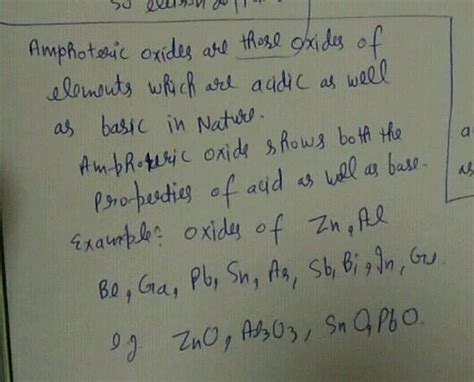 Amphoteric oxides are those oxides of
elements which are acidic as well
as basic in Nature.
Amphoteric oxide shows both the
Properties of acid as well as base.
Example: oxides of Zn, Al
Be, Ga, Pb, Sn, As, Sb, Bi, In, Ge
e.g. ZnO, Al2O3, SnO, PbO.
a
as